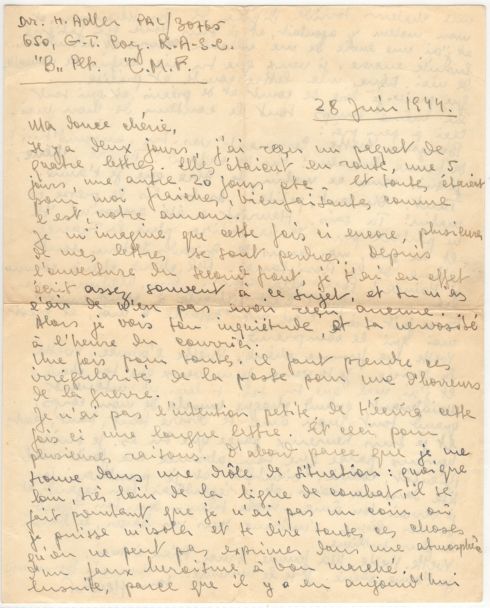 Dr. H. Adler PAL/30765
650, G.T. Coy. R.A.S.C.
"B" Plt. C.M.F.
28 Juin 1944.
Ma douce chérie,
Il y a deux jours, j'ai reçu un paquet de
quatre lettres. Elles étaient en route, une 5
jours, une autre 20 jours etc. et toutes étaient
pour moi fraîches, bienfaisantes comme
c'est, notre amour.
Je m'imagine que cette fois ci encore, plusieures
de mes lettres se sont perdues. Depuis
l'ouverture du second front, je t'ai en effet
écrit assez souvent à ce sujet, et tu m'as
l'air de n'en pas avoir reçu aucune.
Alors je vois ton inquiétude et ta nervosité
à l'heure du courrier.
Une fois pour toutes, il faut prendre ces
irrégularités de la poste pour une d'horreurs
de la guerre.
Je n'ai pas l'intention petite de t'écrire cette
fois ci une longue lettre. Et ceci pour
plusieures raisons. D'abord parce que je me
trouve dans une drôle de situation: quoique
loin, très loin de la ligne de combat, il se
fait pourtant que je n'ai pas un coin où
je puisse m'isoler et te dire toutes ces choses
qu'on ne peut pas exprimer dans une atmosphère
d'un faux heroisme à bon marché.
Ensuite, parce que il y a eu aujourd'hui